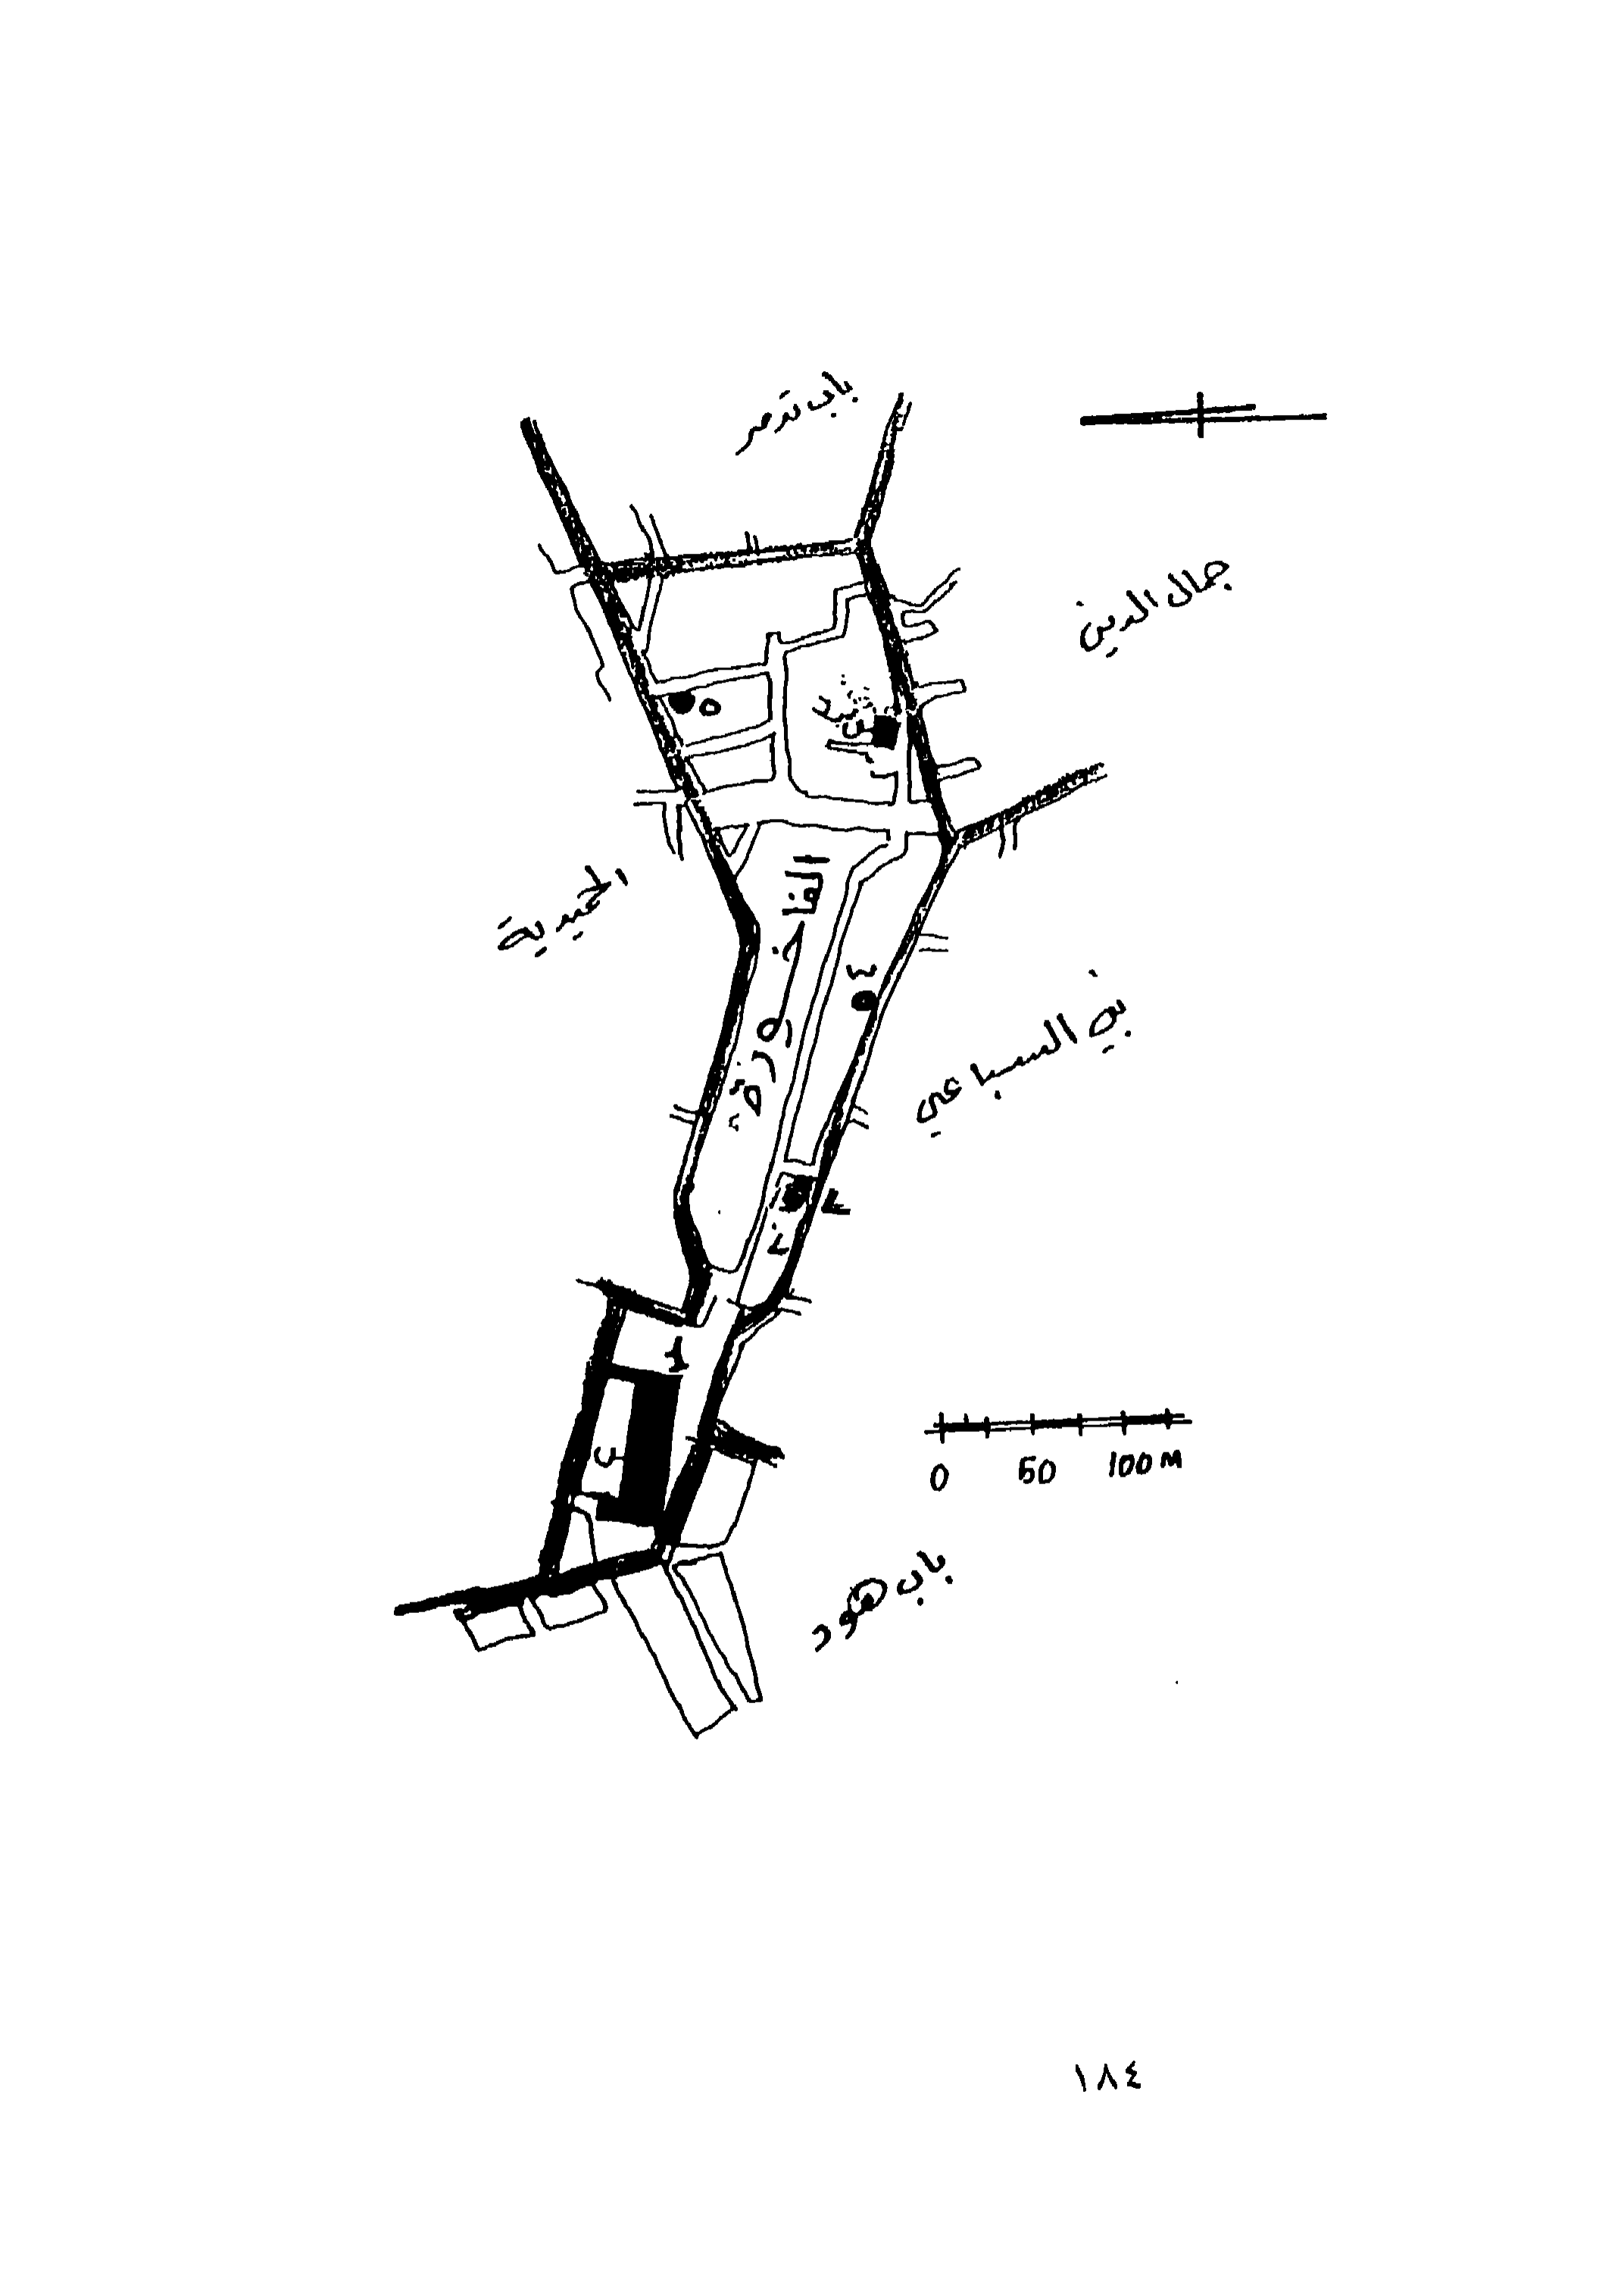 باب تدمر
جمال الدين
الحميدية
الفاخورة
٥
٤
بني السباعي
0 50 100 M
باب هود
١٨٤